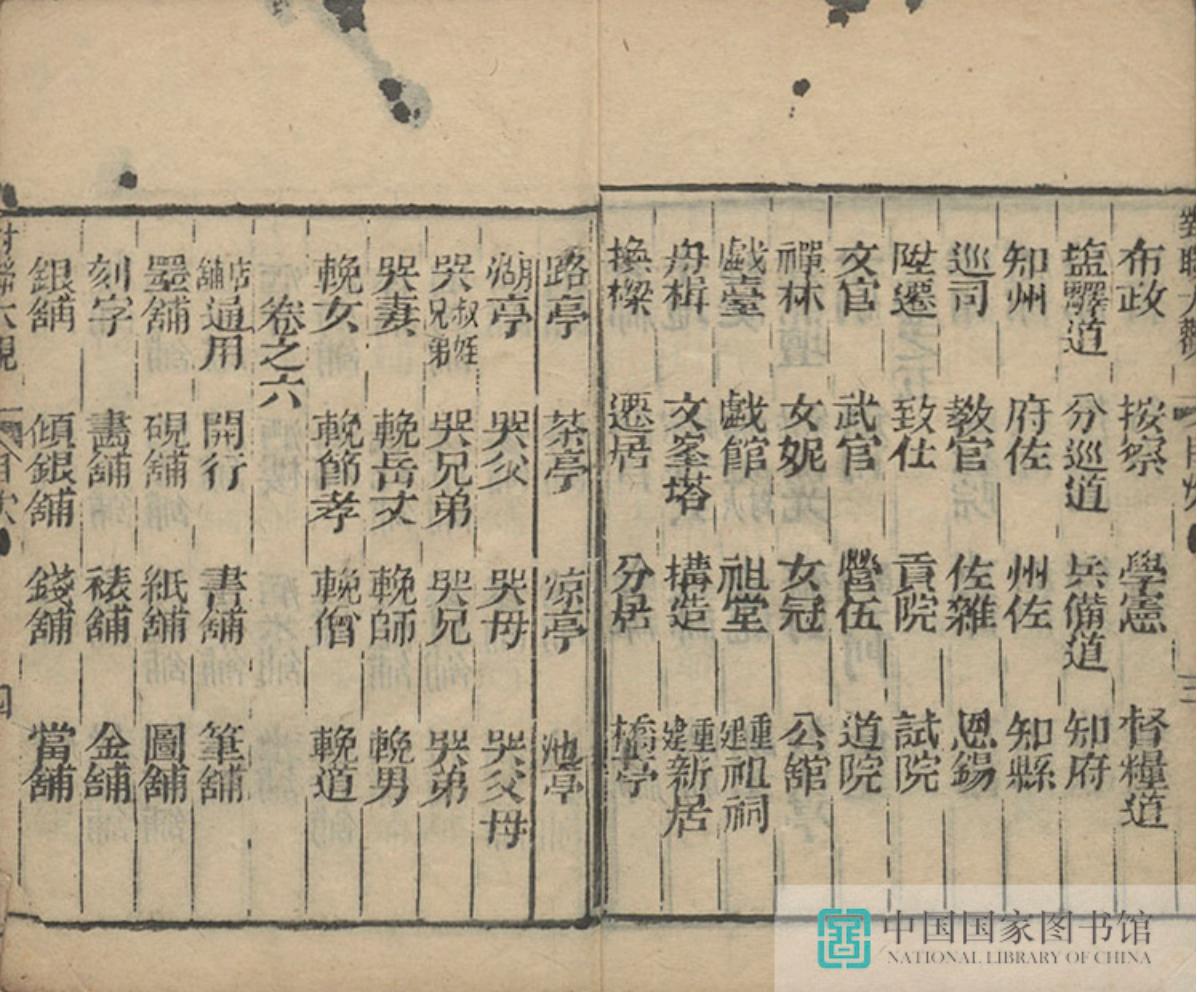 布政 按察 學憲 督糧道
塩驛道 分巡道 兵備道 知府
知州 府佐 州佐 知縣
巡司 教官 佐雜 恩錫
陞遷 致仕 貢院 試院
文官 武官 營伍 道院
禪林 女妮 女冠 公舘
戲臺 戲館 祖堂 重建祖祠
舟楫 文峯塔 構造 重建新居
換樑 遷居 分居 橋亭
路亭 茶亭 凉亭 池亭
湖亭 哭父 哭母 哭父母
哭叔姪兄弟 哭兄弟 哭兄 哭弟
哭妻 輓岳丈 輓師 輓男
輓女 輓節孝 輓僧 輓道
卷之六
店舖通用 開行 書舖 筆舖
墨舖 硯舖 紙舖 圖舖
刻字 畵舖 裱舖 金舖
銀舖 傾銀舖 錢舖 當舖
中国国家图书馆
NATIONAL LIBRARY OF CHINA